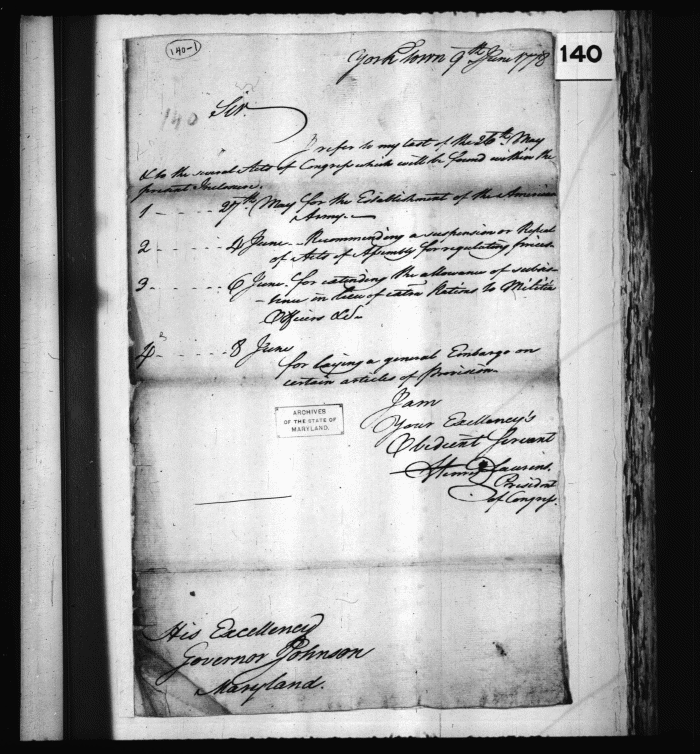 140-1
York town 9th June 1778
140
140
Sir.
I refer to my last of the 26th May
& to the several Acts of Congress which will be found within the
present Inclosure.
1 - - - - 27th May for the Establishment of the American
Army.
2 - - - - - 4 June. Recommending a suspension or Repeal
of Acts of Assembly for regulating prices.
3 - - - - - 6 June. for extending the allowance of subsis-
-tence in lieu of extra Rations to Militia
Officers &c-
4 - - - - 8 June
for laying a general Embargo on
certain articles of Provision.
I am
Your Excellency's
Obedient Servant
Henry Laurens.
President
of Congress.
ARCHIVES
OF THE STATE OF
MARYLAND.
His Excellency
Governor Johnson
Maryland.